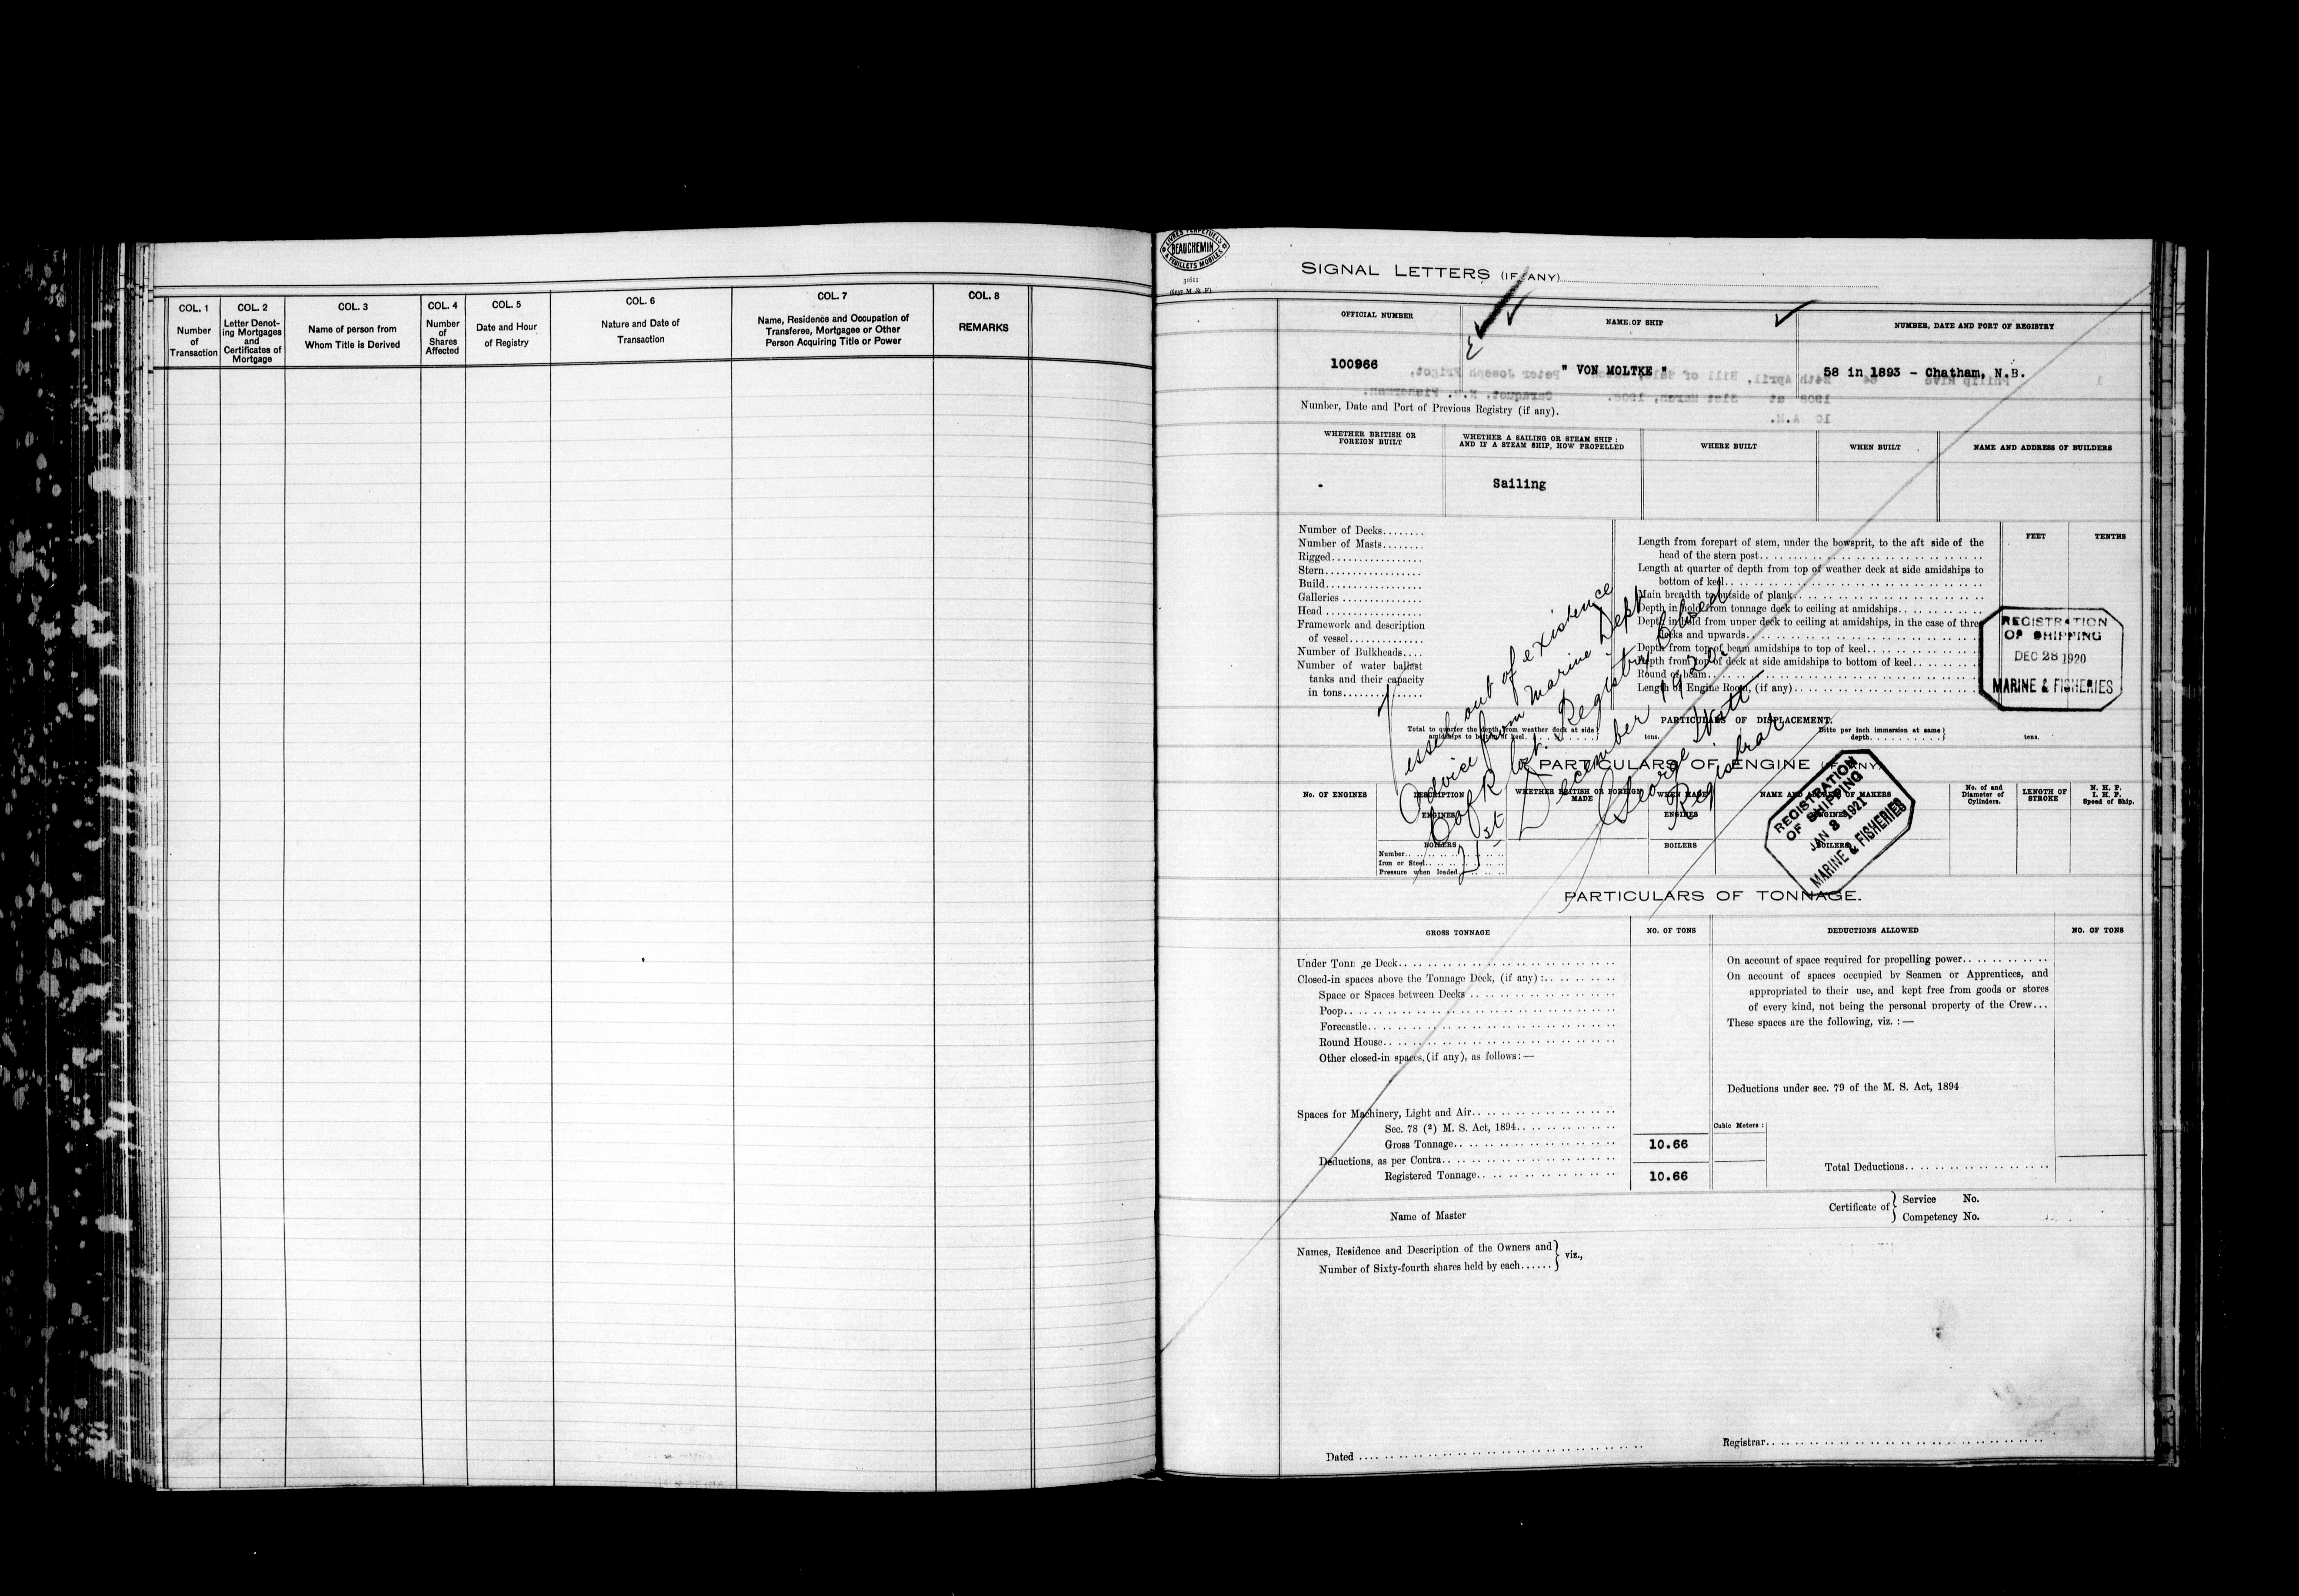 COL. 1
Number
of
Transaction
COL. 2
Letter Denot-
ing Mortgages
and
Certificates of
Mortgage
COL. 3
Name of person from
Whom Title is Derived
COL. 4
Number
of
Shares
Affected
COL. 5
Date and Hour
of Registry
COL. 6
Nature and Date of
Transaction
COL. 7
Name, Residence and Occupation of
Transferee, Mortgagee or Other
Person Acquiring Title or Power
COL. 8
REMARKS
LIVRES PERPETUELS
BEAUCHEMIN
& FEUILLETS MOBILES
31611
(6237 M & F)
SIGNAL LETTERS (IF ANY)
OFFICIAL NUMBER
NAME OF SHIP
NUMBER, DATE AND PORT OF REGISTRY
100966
" VON MOLTKE "
58 in 1893 - Chatham, N.B.
Number, Date and Port of Previous Registry (if any).
WHETHER BRITISH OR
FOREIGN BUILT
WHETHER A SAILING OR STEAM SHIP:
AND IF A STEAM SHIP, HOW PROPELLED
WHERE BUILT
WHEN BUILT
NAME AND ADDRESS OF BUILDERS
Sailing
Number of Decks........
Number of Masts........
Rigged.................
Stern..................
Build..................
Galleries ...............
Head ..................
Framework and description
of vessel..............
Number of Bulkheads....
Number of water ballast
tanks and their capacity
in tons...............
Length from forepart of stem, under the bowsprit, to the aft side of the
head of the stern post..........
Length at quarter of depth from top of weather deck at side amidships to
bottom of keel..........
Main breadth to outside of plank..........
Depth in hold from tonnage deck to ceiling at amidships..........
Depth in hold from upper deck to ceiling at amidships, in the case of three
decks and upwards..........
Depth from top of beam amidships to top of keel..........
Depth from top of deck at side amidships to bottom of keel..........
Round of beam..........
Length of Engine Room, (if any)..........
FEET
TENTHS
REGISTRATION
OF SHIPPING
DEC 28 1920
MARINE & FISHERIES
Vessel out of existence
Advice from Marine Dept
Registry Closed
21st December 1920.
George Watt
Registrar
PARTICULARS OF DISPLACEMENT.
Total to quarter the depth from weather deck at side
amidships to bottom of keel.
tons.
Ditto per inch immersion at same
depth.
tons.
PARTICULARS OF ENGINE (IF ANY)
No. OF ENGINES
DESCRIPTION
WHETHER BRITISH OR FOREIGN
MADE
WHEN MADE
NAME AND ADDRESS OF MAKERS
No. of and
Diameter of
Cylinders.
LENGTH OF
STROKE
N. H. P.
I. H. P.
Speed of Ship.
ENGINES
ENGINES
ENGINES
BOILERS
BOILERS
BOILERS
Number..........
Iron or Steel..........
Pressure when loaded..........
REGISTRATION
OF SHIPPING
JAN 3 1921
MARINE & FISHERIES
PARTICULARS OF TONNAGE.
GROSS TONNAGE
NO. OF TONS
DEDUCTIONS ALLOWED
NO. OF TONS
Under Tonnage Deck..........
Closed-in spaces above the Tonnage Deck, (if any):..........
Space or Spaces between Decks ..........
Poop..........
Forecastle..........
Round House..........
Other closed-in spaces, (if any), as follows:—
Spaces for Machinery, Light and Air..........
Sec. 78 (2) M. S. Act, 1894..........
Gross Tonnage.......... 10.66
Deductions, as per Contra..........
Registered Tonnage.......... 10.66
Cubic Meters:
On account of space required for propelling power..........
On account of spaces occupied by Seamen or Apprentices, and
appropriated to their use, and kept free from goods or stores
of every kind, not being the personal property of the Crew...
These spaces are the following, viz.:—
Deductions under sec. 79 of the M. S. Act, 1894
Total Deductions..........
Name of Master
Certificate of
Service No.
Competency No.
Names, Residence and Description of the Owners and
Number of Sixty-fourth shares held by each......
viz.,
Dated ..........
Registrar..........